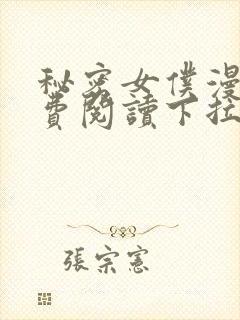 秘密女僕漫
費閱讀下拉
張宗憲